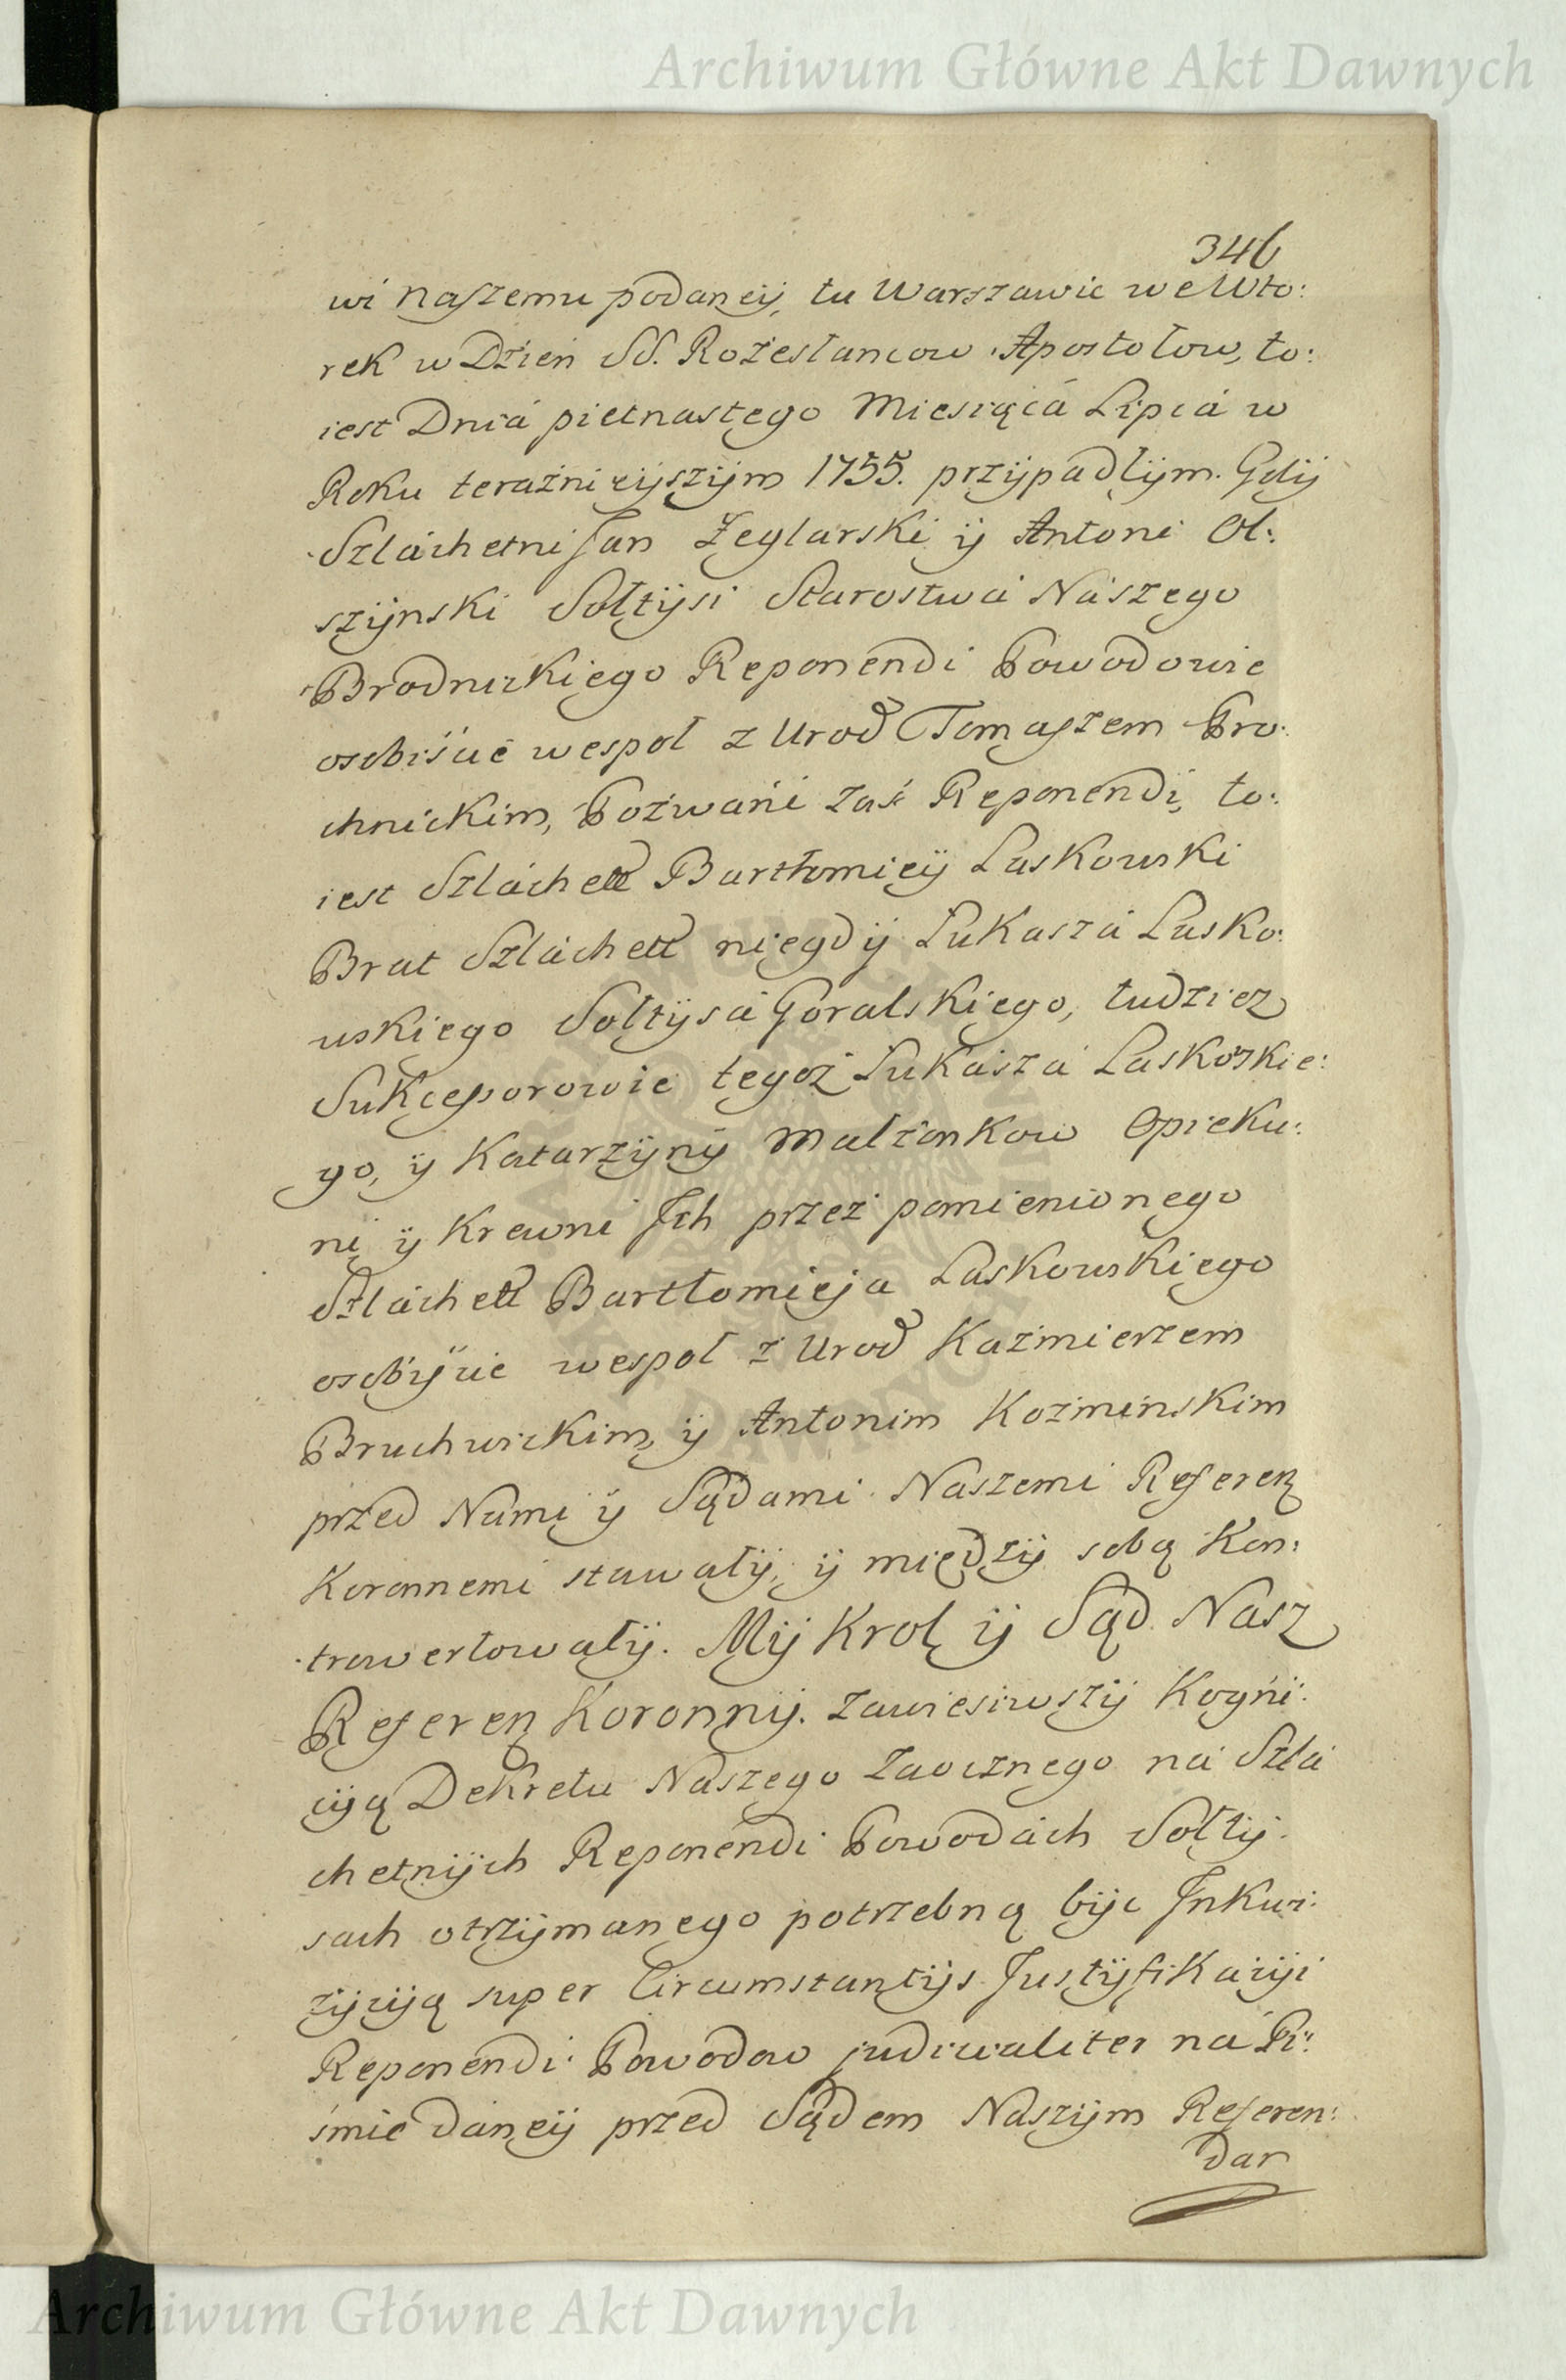 Archiwum Główne Akt Dawnych
346
wi naszemu podaney, tu Warszawie we Wto:
rek w Dzień SS. Rozesłancow Apostołow, to:
iest Dniá pietnastego Miesiącá Lipcá w
Roku teraznieyszym 1755. przypadłym. Gdy
Szláchetni Jan Zeglarski y Antoni Ol:
szynski Sołtysi Starostwá Nászego
Brodnickiego Reponendi Powodowie
osobiście wespoł z Urod Tomaszem Pro:
chnickim, Pozwáni zaś Reponendi, to:
iest Szláchett Bartłomiey Laskowski
Brat Szláchett niegdy Łukaszá Lasko:
wskiego Sołtysá Goralskiego, tudziez
Sukcessorowie tegoż Łukászá Laskoskie:
go, y Katarzyny Małżonkow Opieku:
ni y Krewni Jch przez pomienionego
Szláchett Bartłomieja Laskowskiego
osobiście wespoł z Urod Kazimierzem
Bruchwickim, y Antonim Kozminskim
przed Námi y Sądami Naszemi Referen
Koronnemi stawały, y między sobą Kon:
trowertowały. My Krol y Sąd Nasz
Referen Koronny. zawiesiwszy Kogni:
cyą Dekretu Naszego zaocznego ná Szlá
chetnych Reponendi Powodách Sołty:
sach otrzymanego potrzebną byc Jnkwi:
zycyą super Circumstantys Justyfikacyi
Reponendi Powodow judicialiter ná Pi:
śmie daney przed Sądem Naszym Referen:
dar
Archiwum Główne Akt Dawnych